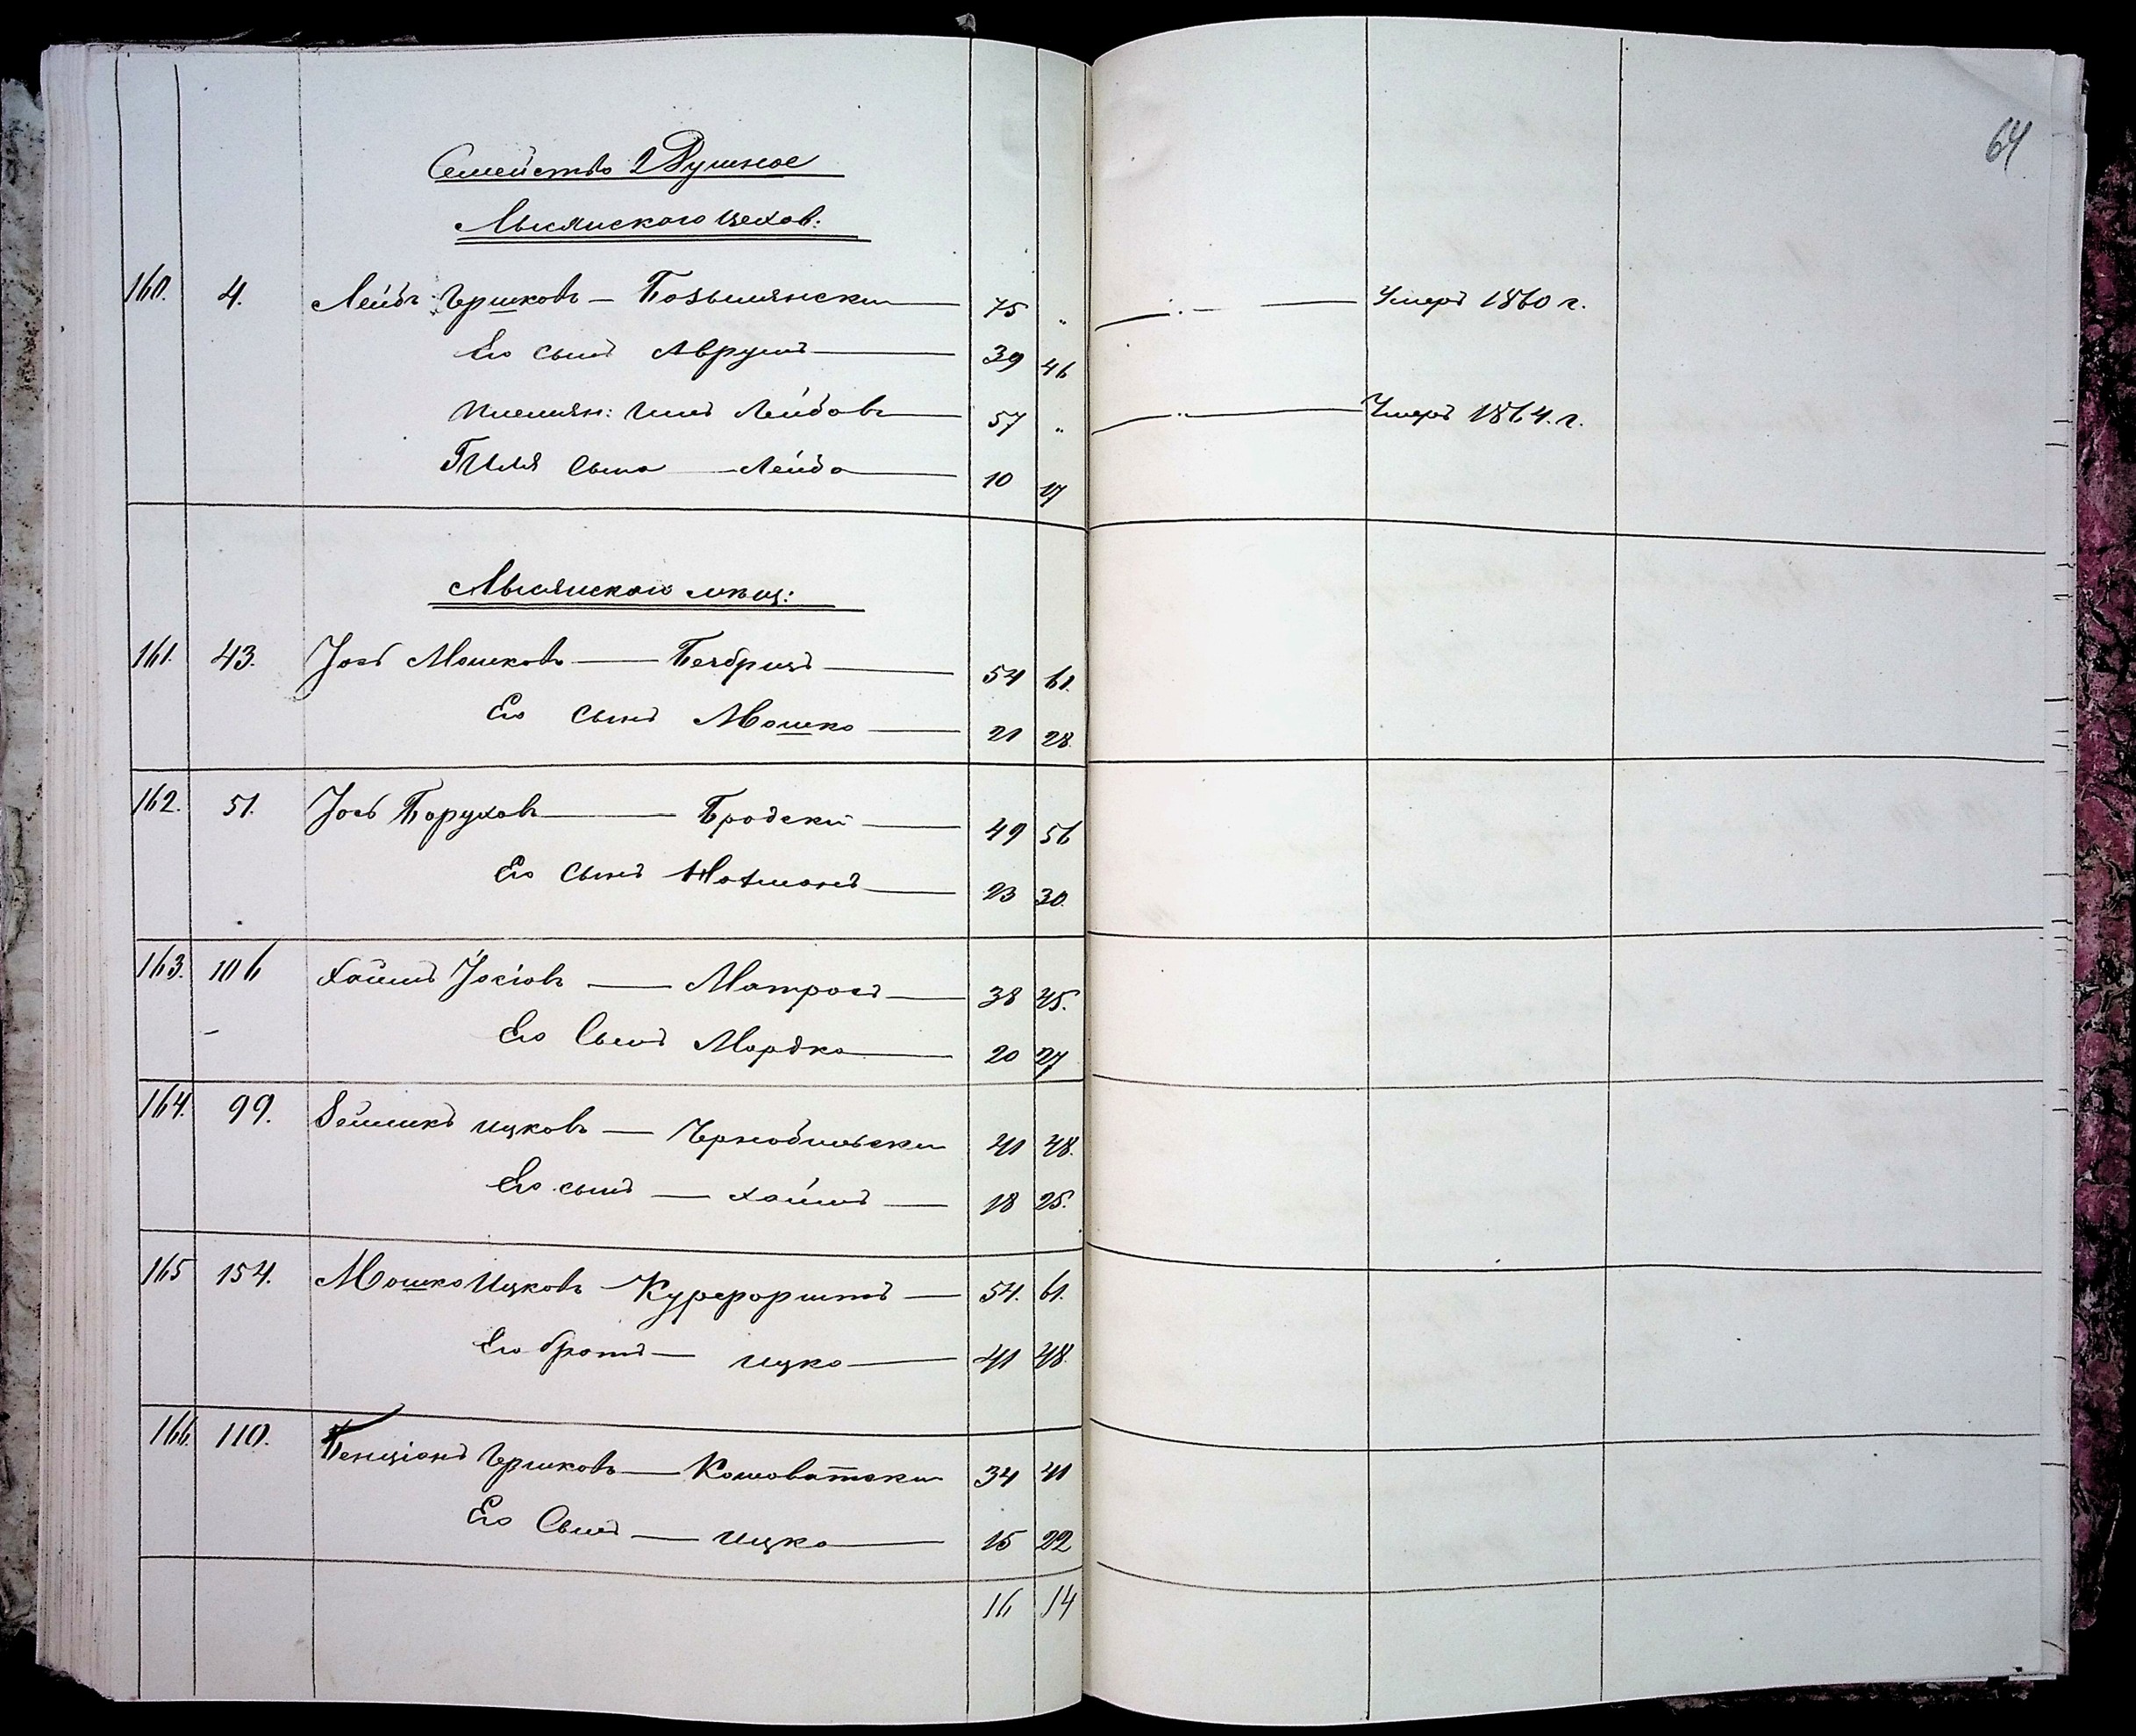 64
Семейство 2 Душное
Лысянского цехов:
160. 4. Лейбъ Гершковъ — Позымански — 75 „ — Умеръ 1860 г.
Его сынъ Аврумъ — 39 46
племян: Гиль Лейбовъ — 57 „ — Умеръ 1864. г.
Гиля сына — Лейба — 10 17
Лысянского мѣщ:
161. 43. Іосъ Мошковъ — Бечбрицъ — 54 61.
Его сынъ Мошко — 21 28
162. 51. Іосъ Боруховъ — Бродскій — 49 56
Его сынъ Нотманъ — 23 30.
163. 106 Хаимъ Йосіовъ — Матросъ — 38 45.
Его Сынъ Мордко — 20 27
164. 99. Зейликъ Ицковъ — Чернобильски 41 48.
Его сынъ — Хаимъ — 18 25.
165 154. Мошко Ицковъ — Курфоршт — 54. 61.
Его братъ — Ицко — 41 48.
166. 110. Бенціонъ Гершковъ — Кошоватски 34 41
Его Сынъ — Ицко — 15 22
16 14